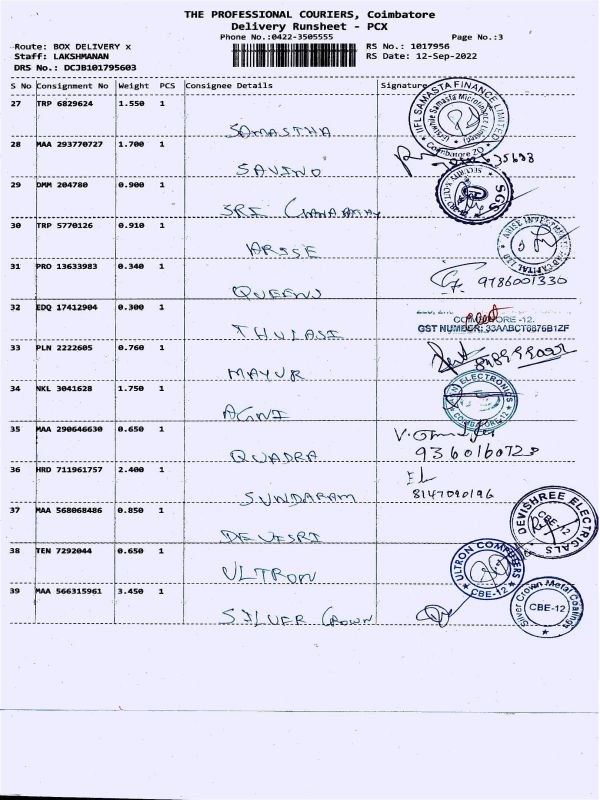 THE PROFESSIONAL COURIERS, Coimbatore
Delivery Runsheet - PCX
Phone No.:0422-3505555
Page No.:3
Route: BOX DELIVERY x
RS No.: 1017956
Staff: LAKSHMANAN
RS Date: 12-Sep-2022
DRS No.: DCJB101795603
S No Consignment No Weight PCS Consignee Details Signature
27 TRP 6829624 1.550 1
SAMASTHA
IIFL SAMASTA FINANCE LIMITED
Samasta Microfinance Limited
Coimbatore
28 MAA 293770727 1.700 1
SAVINO
35698
29 DMM 204780 0.900 1
SRI
SGS
30 TRP 5770126 0.910 1
ARISE
ARISE CAPITAL
31 PRO 13633983 0.340 1
QUEENS
9786001330
32 EDQ 17412904 0.300 1
THULASI
COIMBATORE -12.
GST NUMBER: 33AABCT6876B1ZF
33 PLN 2222605 0.760 1
MAYUR
34 NKL 3041628 1.750 1
AGNI
ELECTRONICS
COIMBATORE-12
35 MAA 290646630 0.650 1
QUADRA
9360160728
36 HRD 711961757 2.400 1
SUNDARAM
8147090196
37 MAA 568068486 0.850 1
DEVISRI
DEVISHREE ELECTRICALS
CBE-12
38 TEN 7292044 0.650 1
ULTRON
ULTRON COMPUTERS
CBE-12
39 MAA 566315961 3.450 1
SILVER CROWN
Silver Crown Metal Coatings
CBE-12